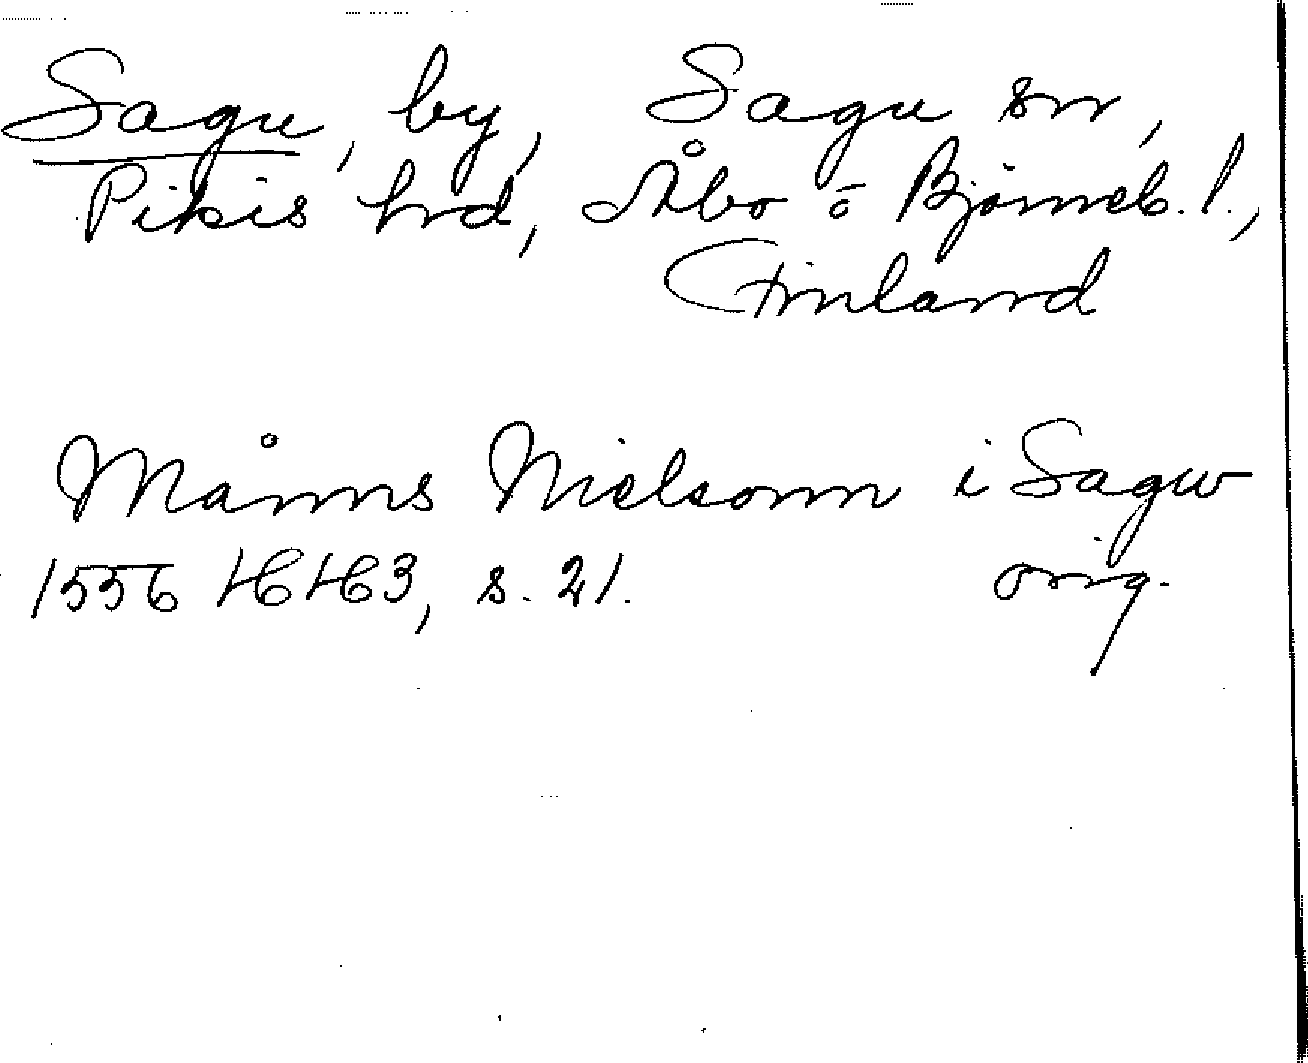 Sagu, by, Sagu sn,
Pikis hrd, Åbo o Björneb. l.,
Finland
Måns Nielsonn i Sagw
1556 HH3, s. 21. orig.